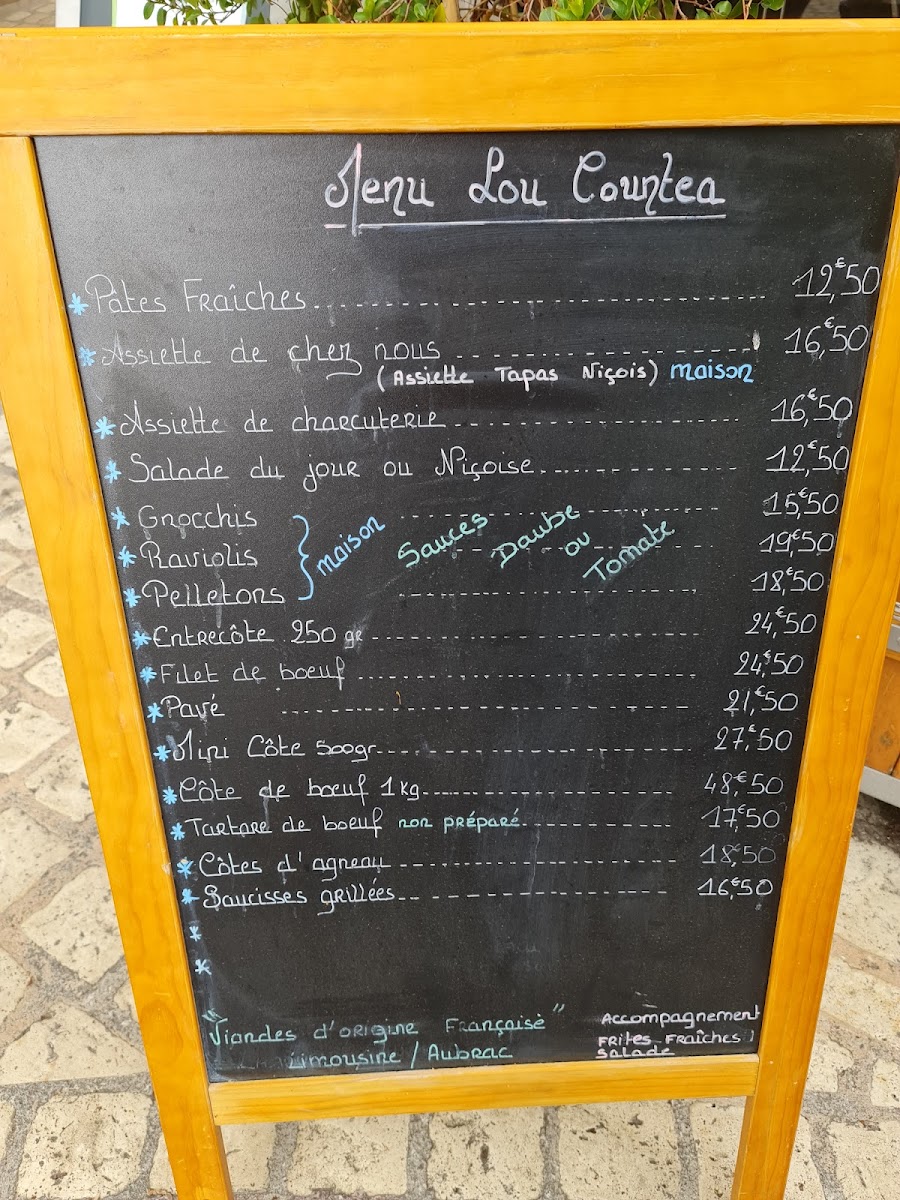 Menu Lou Countea
* Pâtes Fraîches 12€,50
* Assiette de chez nous 16€,50
(Assiette Tapas Niçois) maison
* Assiette de charcuterie 16€,50
* Salade du jour ou Niçoise 12€,50
* Gnocchis 15€,50
* Raviolis 19€,50
* Pelletons 18€,50
maison
Sauces Daube ou Tomate
* Entrecôte 250 gr 24€,50
* Filet de boeuf 24€,50
* Pavé 21€,50
* Mini Côte 500gr 27€,50
* Côte de boeuf 1kg 48€,50
* Tartare de boeuf non préparé 17€,50
* Côtes d'agneau 18€,50
* Saucisses grillées 16€,50
*
*
"Viandes d'origine Française"
Limousine / Aubrac
Accompagnement
Frites Fraîches /
Salade